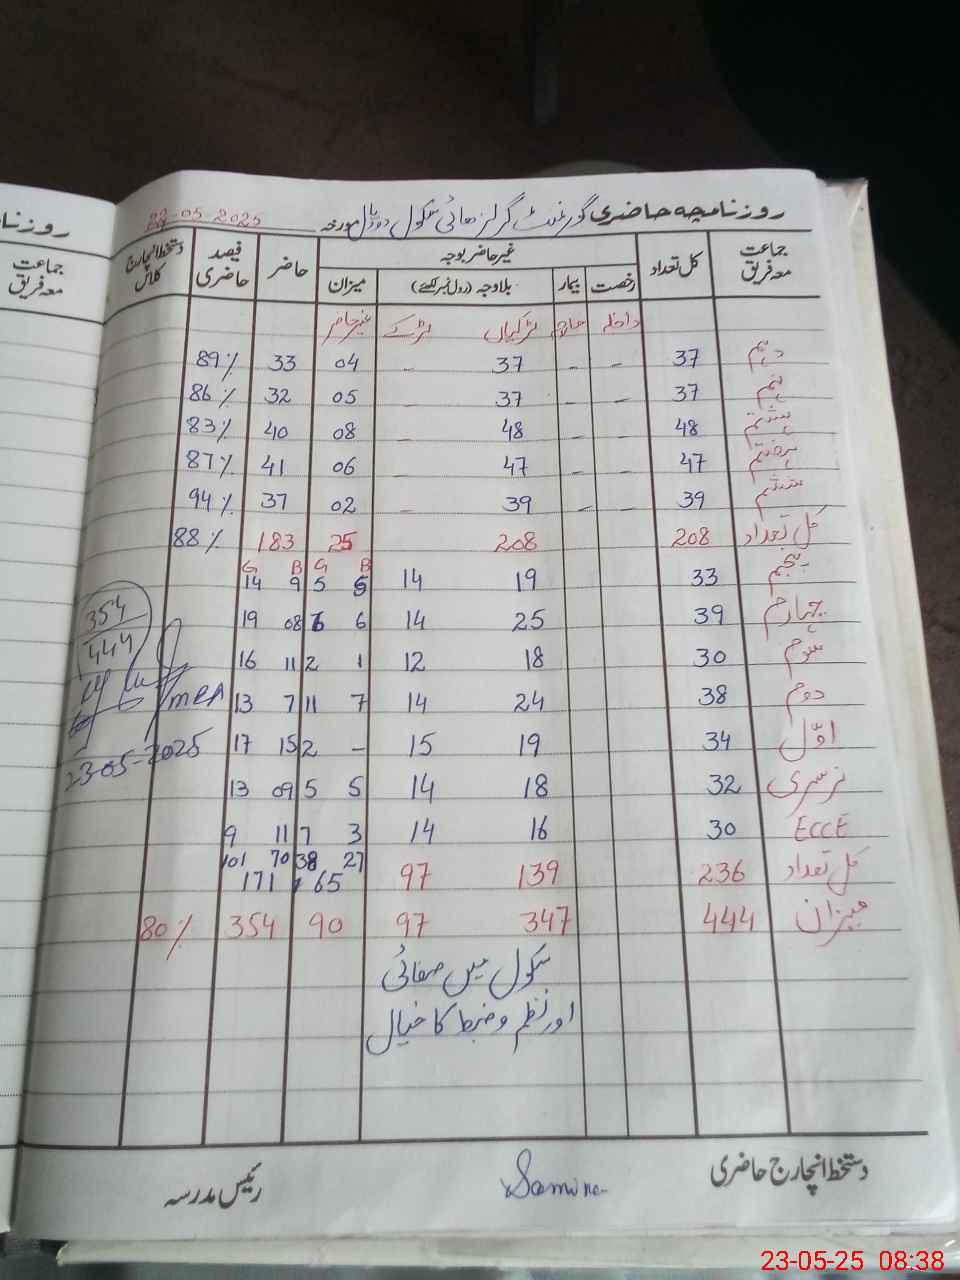 روزنامچہ حاضری گورنمنٹ گرلز ھائی سکول مورخہ 22-05-2025
جماعت معہ فریق کل تعداد غیر حاضر بوجہ حاضر فیصد حاضری دستخط انچارج کلاس
رخصت بیمار بلاوجہ (رول نمبر لکھئے) میزان
داخلہ خارج لڑکیاں لڑکے غیر حاضر
دہم 37 - - 37 - 04 33 89%
نہم 37 - - 37 - 05 32 86%
ہشتم 48 - - 48 - 08 40 83%
ہفتم 47 - - 47 - 06 41 87%
ششم 39 - - 39 - 02 37 94%
کل تعداد 208 208 25 183 88%
B G B G
پنجم 33 19 14 5 5 9 14
چہارم 39 25 14 6 6 08 19
سوم 30 18 12 1 2 11 16
دوم 38 24 14 7 11 7 13
اوّل 34 19 15 - 2 15 17
نرسری 32 18 14 5 5 09 13
ECCE 30 16 14 3 7 11 9
27 38 70 101
کل تعداد 236 139 97 65 171
میزان 444 347 97 90 354 80%
354
444
MEA
23-05-2025
سکول میں صفائی
اور نظم و ضبط کا خیال
دستخط انچارج حاضری Samina رئیس مدرسہ
روزنا
جماعت
معہ فریق
23-05-25 08:38